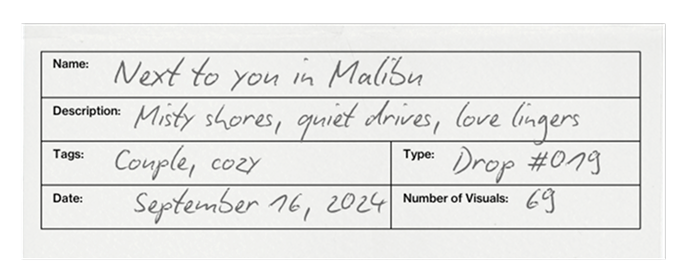 Name: Next to you in Malibu
Description: Misty shores, quiet drives, love lingers
Tags: Couple, cozy Type: Drop #019
Date: September 16, 2024 Number of Visuals: 69